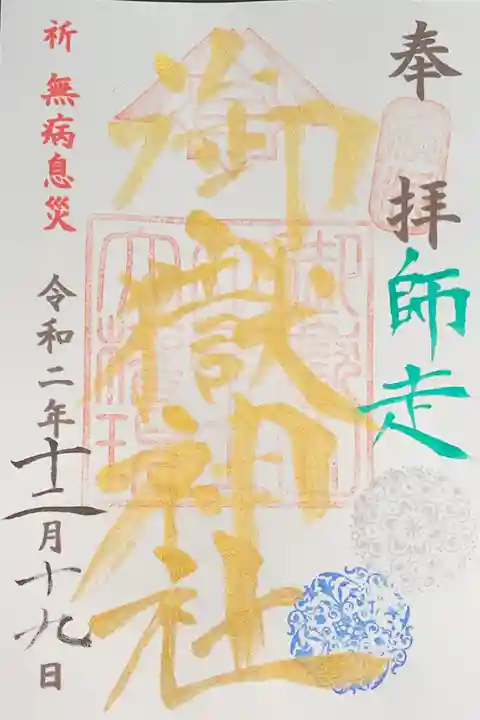 奉拝
師走
御嶽神社
祈 無病息災
令和二年十二月十九日